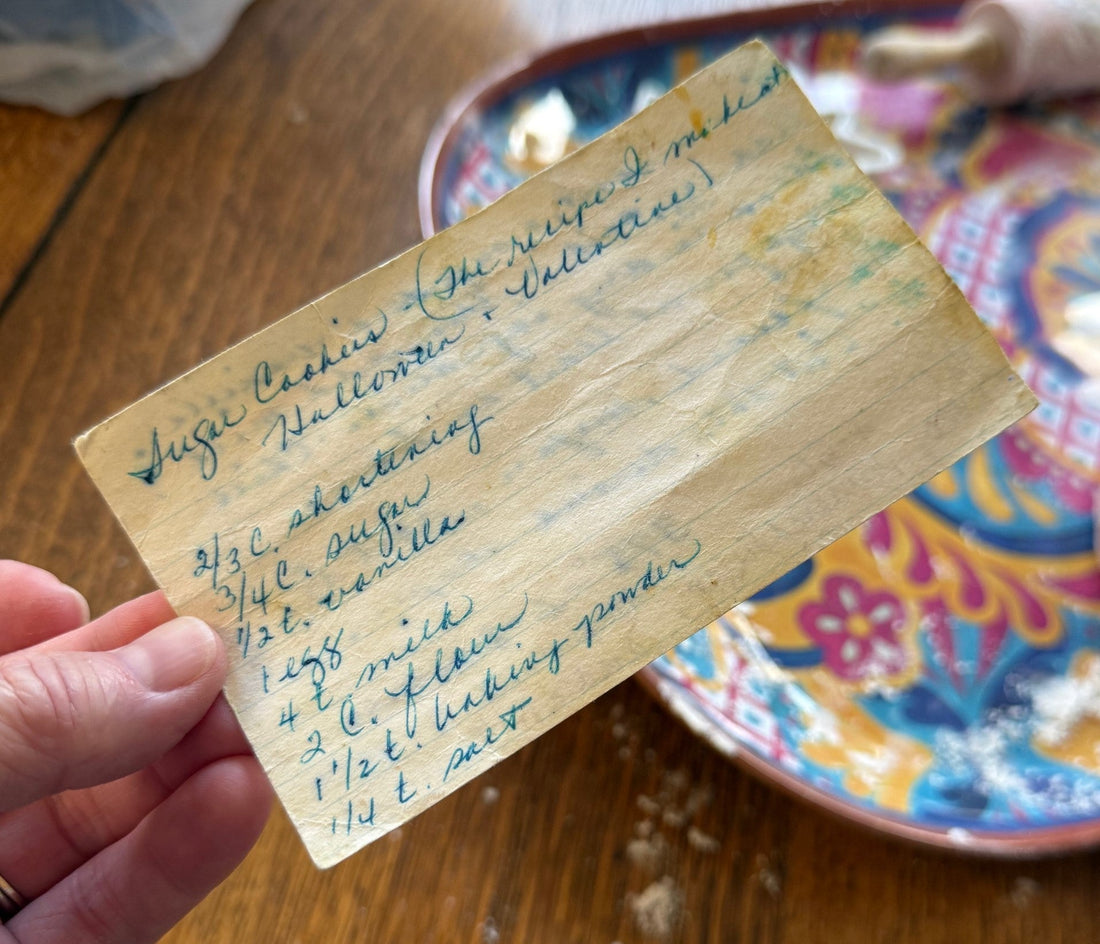 Sugar Cookies - (The recipe I make at
Halloween & Valentine)
2/3 C. shortening
3/4 C. sugar
1/2 t. vanilla
1 egg
4 t milk
2 C. flour
1 1/2 t. baking powder
1/4 t. salt